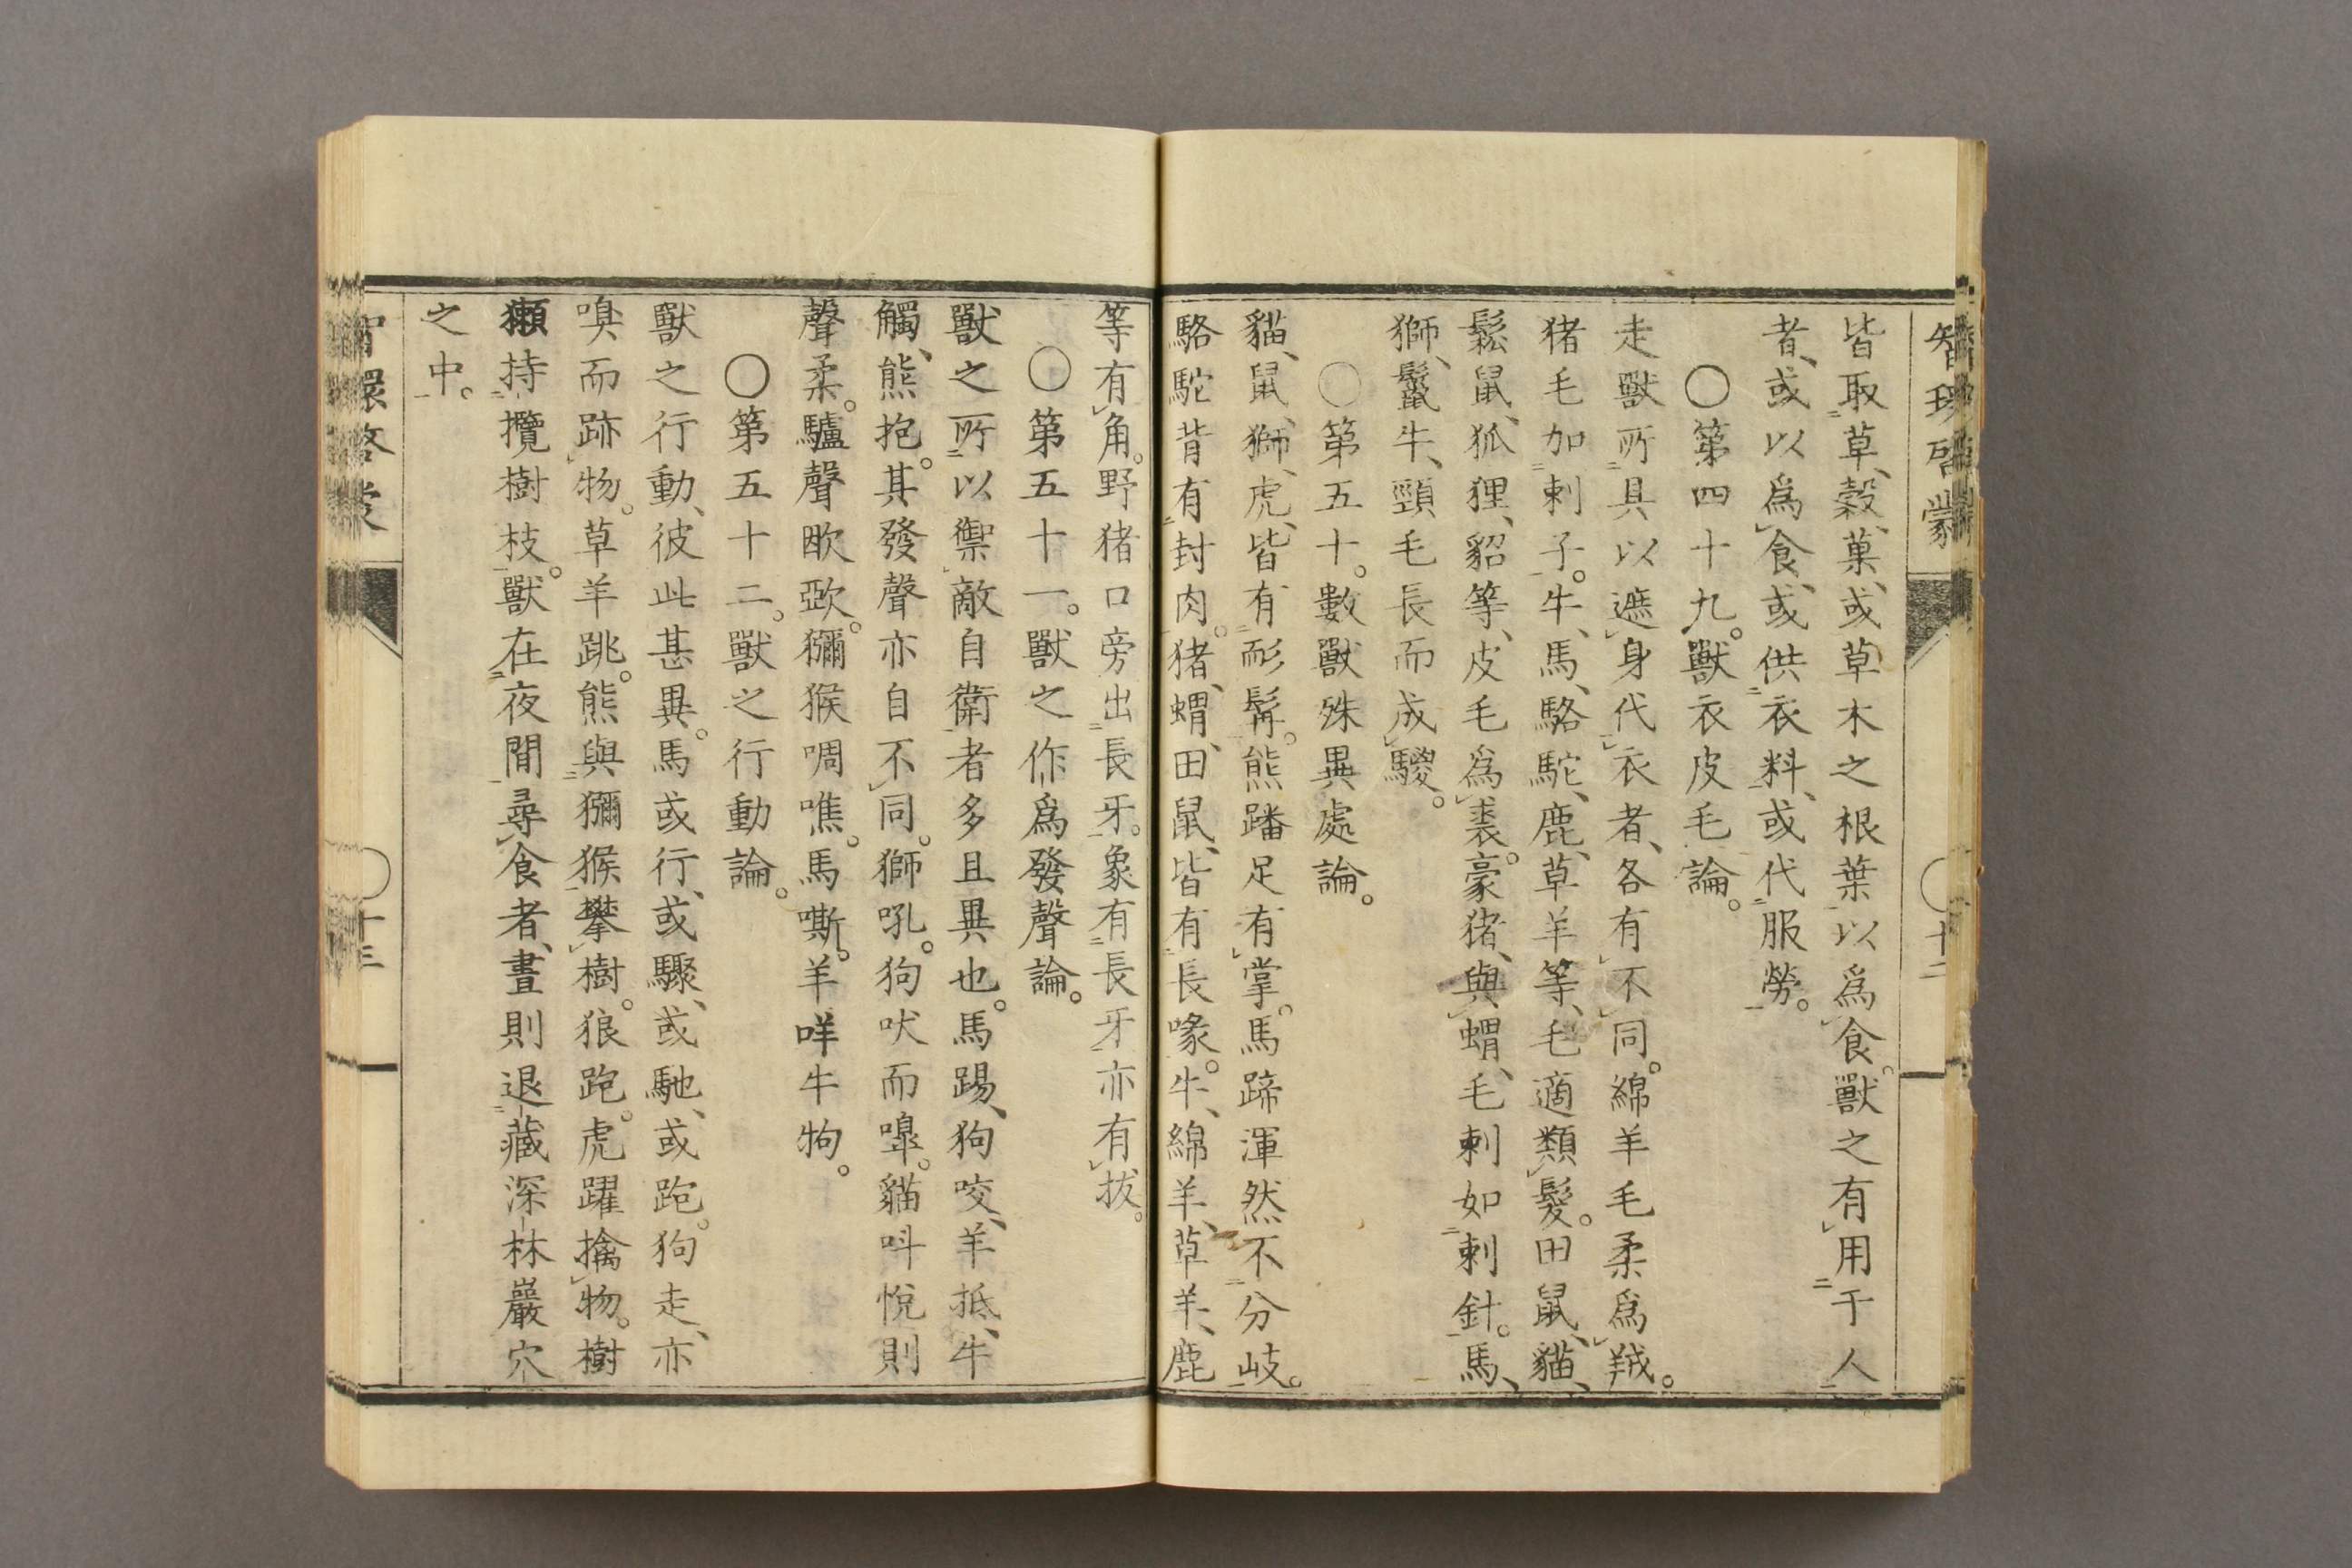 智環啓蒙
〇十二
皆取草、穀、菓、或草木之根葉以爲食。獸之有用于人
者、或以爲食、或供衣料、或代服勞。
〇第四十九。獸衣皮毛論。
走獸所具以遮身代衣者、各有不同。綿羊毛柔爲羢。
猪毛加刺子。牛、馬、駱駝、鹿、草羊等、毛適類髮。田鼠、貓、
鬆鼠、狐狸、貂等、皮毛爲裘。豪猪、與蝟、毛刺如刺針。馬、
獅、鬣牛、頸毛長而成騣。
〇第五十。數獸殊異處論。
貓、鼠、獅、虎、皆有耏髯。熊蹯足有掌。馬蹄渾然不分岐。
駱駝背有封肉。猪、蝟、田鼠、皆有長喙。牛、綿羊、草羊、鹿
等有角。野猪口旁出長牙。象有長牙亦有拔。
〇第五十一。獸之作爲發聲論。
獸之所以禦敵自衛者多且異也。馬踢、狗咬、羊抵、牛
觸、熊抱。其發聲亦自不同。獅吼。狗吠而嘷。貓呌悅則
聲柔。驢聲歐歌。獼猴啁噍。馬嘶。羊咩牛㸦。
〇第五十二。獸之行動論。
獸之行動、彼此甚異。馬或行、或驟、或馳、或跑。狗走、亦
嗅而跡物。草羊跳。熊與獼猴攀樹。狼跑。虎躍擒物。樹
獺持攬樹枝。獸在夜間尋食者、晝則退藏深林巖穴
之中。
十三